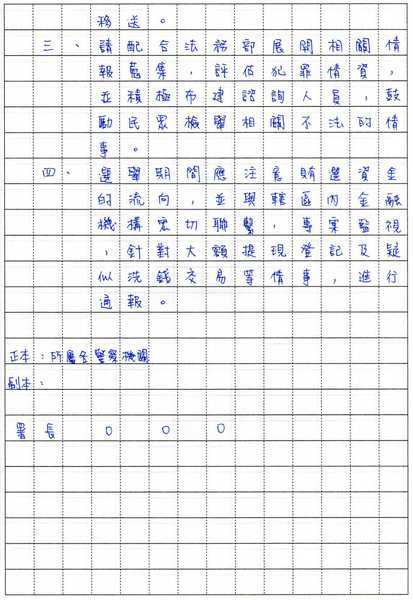 移送。
三、請配合法務部展開相關情
報蒐集，評估犯罪情資，
並積極布建諮詢人員，鼓
勵民眾檢舉相關不法的情
事。
四、選舉期間應注意賄選資金
的流向，並與轄區內金融
機構密切聯繫，專案監視
，針對大額提現登記及疑
似洗錢交易等情事，進行
通報。
正本：所屬各警察機關
副本：
署長 ○○○